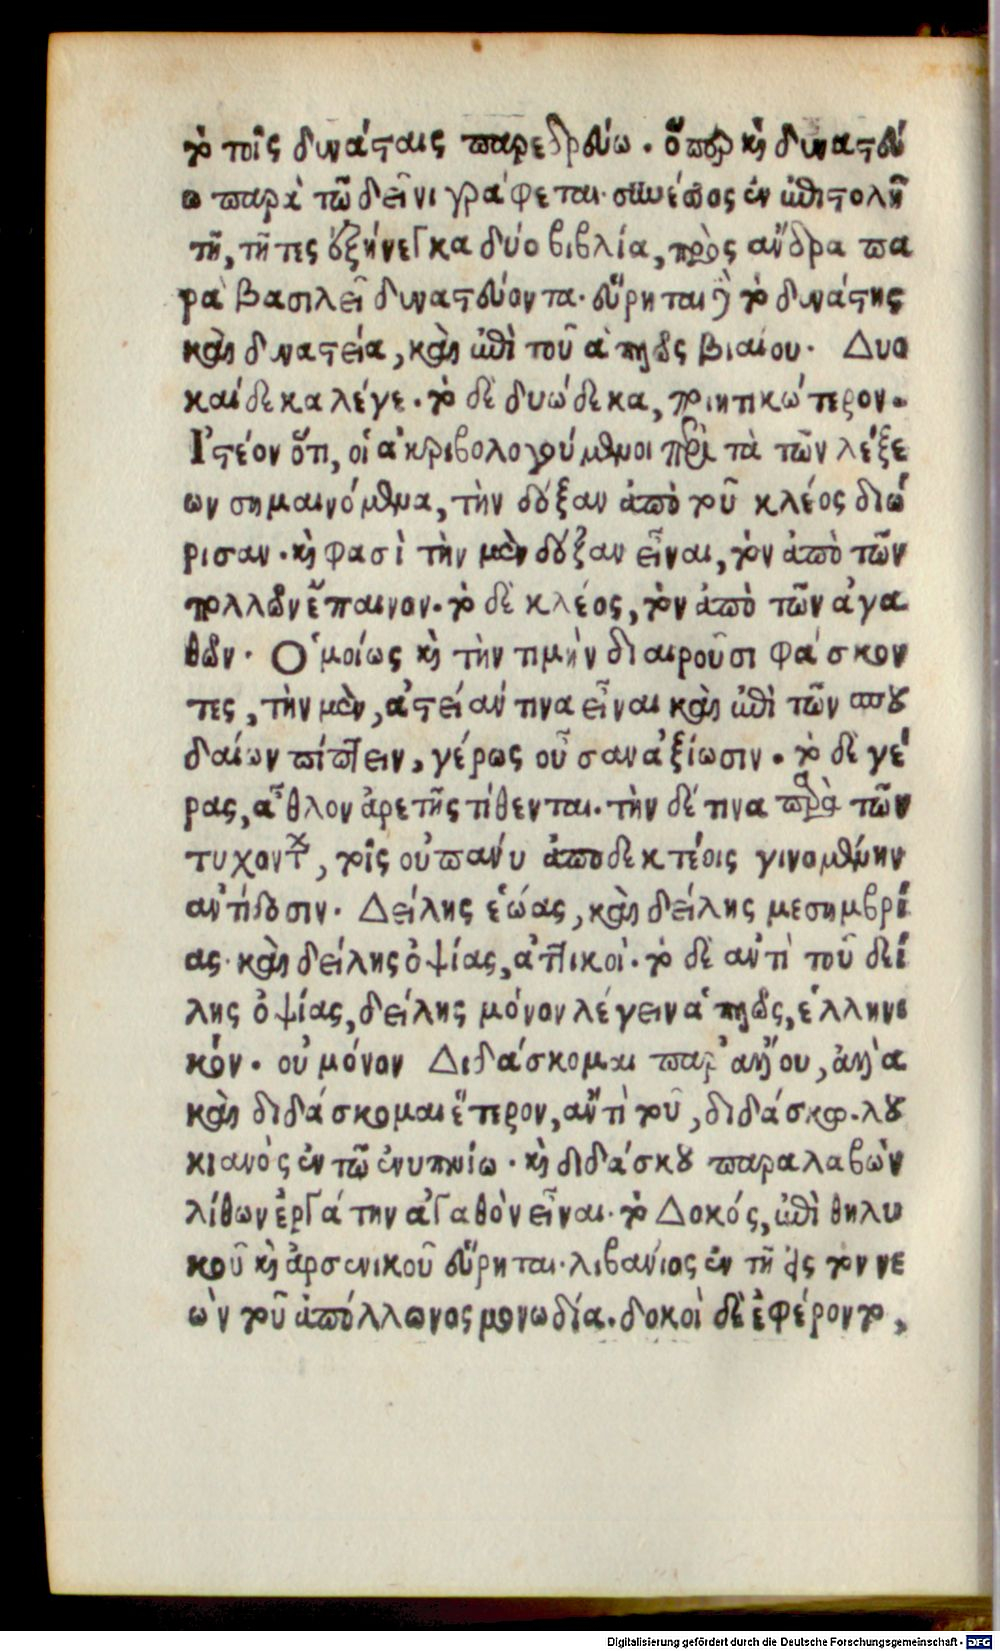 τὸ τοῖς δυνάσταις παρεδρεύω. ὅπερ καὶ δυναστεύ
ω παρὰ τῷ δεῖνι γράφεται. συνέσιος ἐν ἐπιστολῇ
τῇ, τῇ τες ἐξήνεγκα δύο βιβλία, πρὸς ἄνδρα πα
ρὰ βασιλεῖ δυναστεύοντα. εὕρηται δὲ τὸ δυνάστης
καὶ δυναστεία, καὶ ἐπὶ τοῦ ἁπλῶς βιαίου. Δυο
καίδεκα λέγε. τὸ δὲ δυώδεκα, ποιητικώτερον.
Ἰστέον ὅτι, οἱ ἀκριβολογούμενοι περὶ τὰ τῶν λέξε
ων σημαινόμενα, τὴν δόξαν ἀπὸ τοῦ κλέος διώ
ρισαν. καὶ φασὶ τὴν μὲν δόξαν εἶναι, τὸν ἀπὸ τῶν
πολλῶν ἔπαινον. τὸ δὲ κλέος, τὸν ἀπὸ τῶν ἀγα
θῶν. Ὁμοίως καὶ τὴν τιμὴν διαιροῦσι φάσκον
τες, τὴν μὲν, ἀστείαν τινα εἶναι καὶ ἐπὶ τῶν σπου
δαίων πίπτειν, γέρως οὖσαν ἀξίωσιν. τὸ δὲ γέ
ρας, ἆθλον ἀρετῆς τίθενται. τὴν δέ τινα παρὰ τῶν
τυχόντων, τοῖς οὐ πάνυ ἀποδεκτέοις γινομένην
ἀντίδοσιν. Δείλης ἑώας, καὶ δείλης μεσημβρί
ας. καὶ δείλης ὀψίας, ἀττικοί. τὸ δὲ ἀντὶ τοῦ δεί
λης ὀψίας, δείλης μόνον λέγειν ἁπλῶς, ἑλληνι
κόν. οὐ μόνον Διδάσκομαι παρ' ἄλλου, ἀλλὰ
καὶ διδάσκομαι ἕτερον, ἀντὶ τοῦ, διδάσκω. λου
κιανὸς ἐν τῷ ἐνυπνίῳ. καὶ διδάσκου παραλαβὼν
λίθων ἐργάτην ἀγαθὸν εἶναι. τὸ Δοκός, ἐπὶ θηλυ
κοῦ καὶ ἀρσενικοῦ εὕρηται. λιβάνιος ἐν τῇ εἰς τὸν νε
ὼν τοῦ ἀπόλλωνος μονωδία. δοκοὶ δὲ ἐφέροντο,
Digitalisierung gefördert durch die Deutsche Forschungsgemeinschaft - DFG